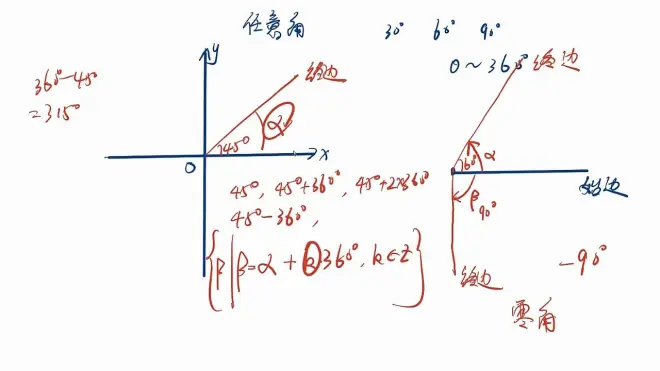 任意角
30° 60° 90°
0~360°
360°-45°
=315°
y
终边
α
45°
O
x
45°, 45°+360°, 45°+2×360°
45°-360°,
{β|β=α+k360°, k∈Z}
终边
60°
α
始边
β
90°
终边
-90°
零角